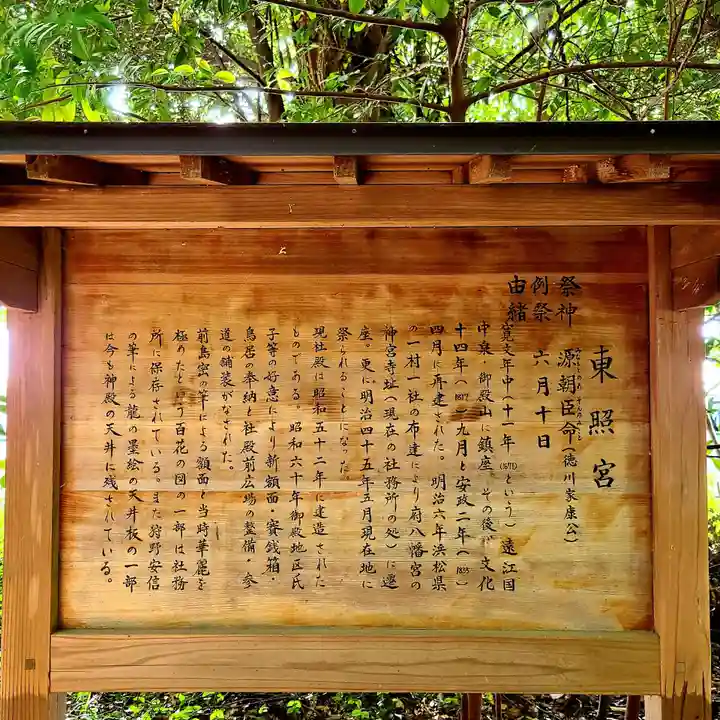 東照宮
祭神 源朝臣命(徳川家康公)
例祭 六月十日
由緒 寛文年中(十一年(1671)という)遠江国
中泉、御殿山に鎮座。その後、文化
十四年(1817)九月と安政二年(1855)
四月に再建された。明治六年浜松県
の一村一社の布達により府八幡宮の
神宮寺址(現在の社務所の処)に遷
座。更に明治四十五年五月現在地に
祭られることになった。
現社殿は昭和五十二年に建造された
ものである。昭和六十年御殿地区氏
子等の好意により新額面・賽銭箱・
鳥居の奉納と社殿前広場の整備・参
道の舗装がなされた。
前島密の筆による額面と当時華麗を
極めたという百花の図の一部は社務
所に保存されている。また狩野安信
の筆による龍の墨絵の天井板の一部
は今も神殿の天井に残されている。